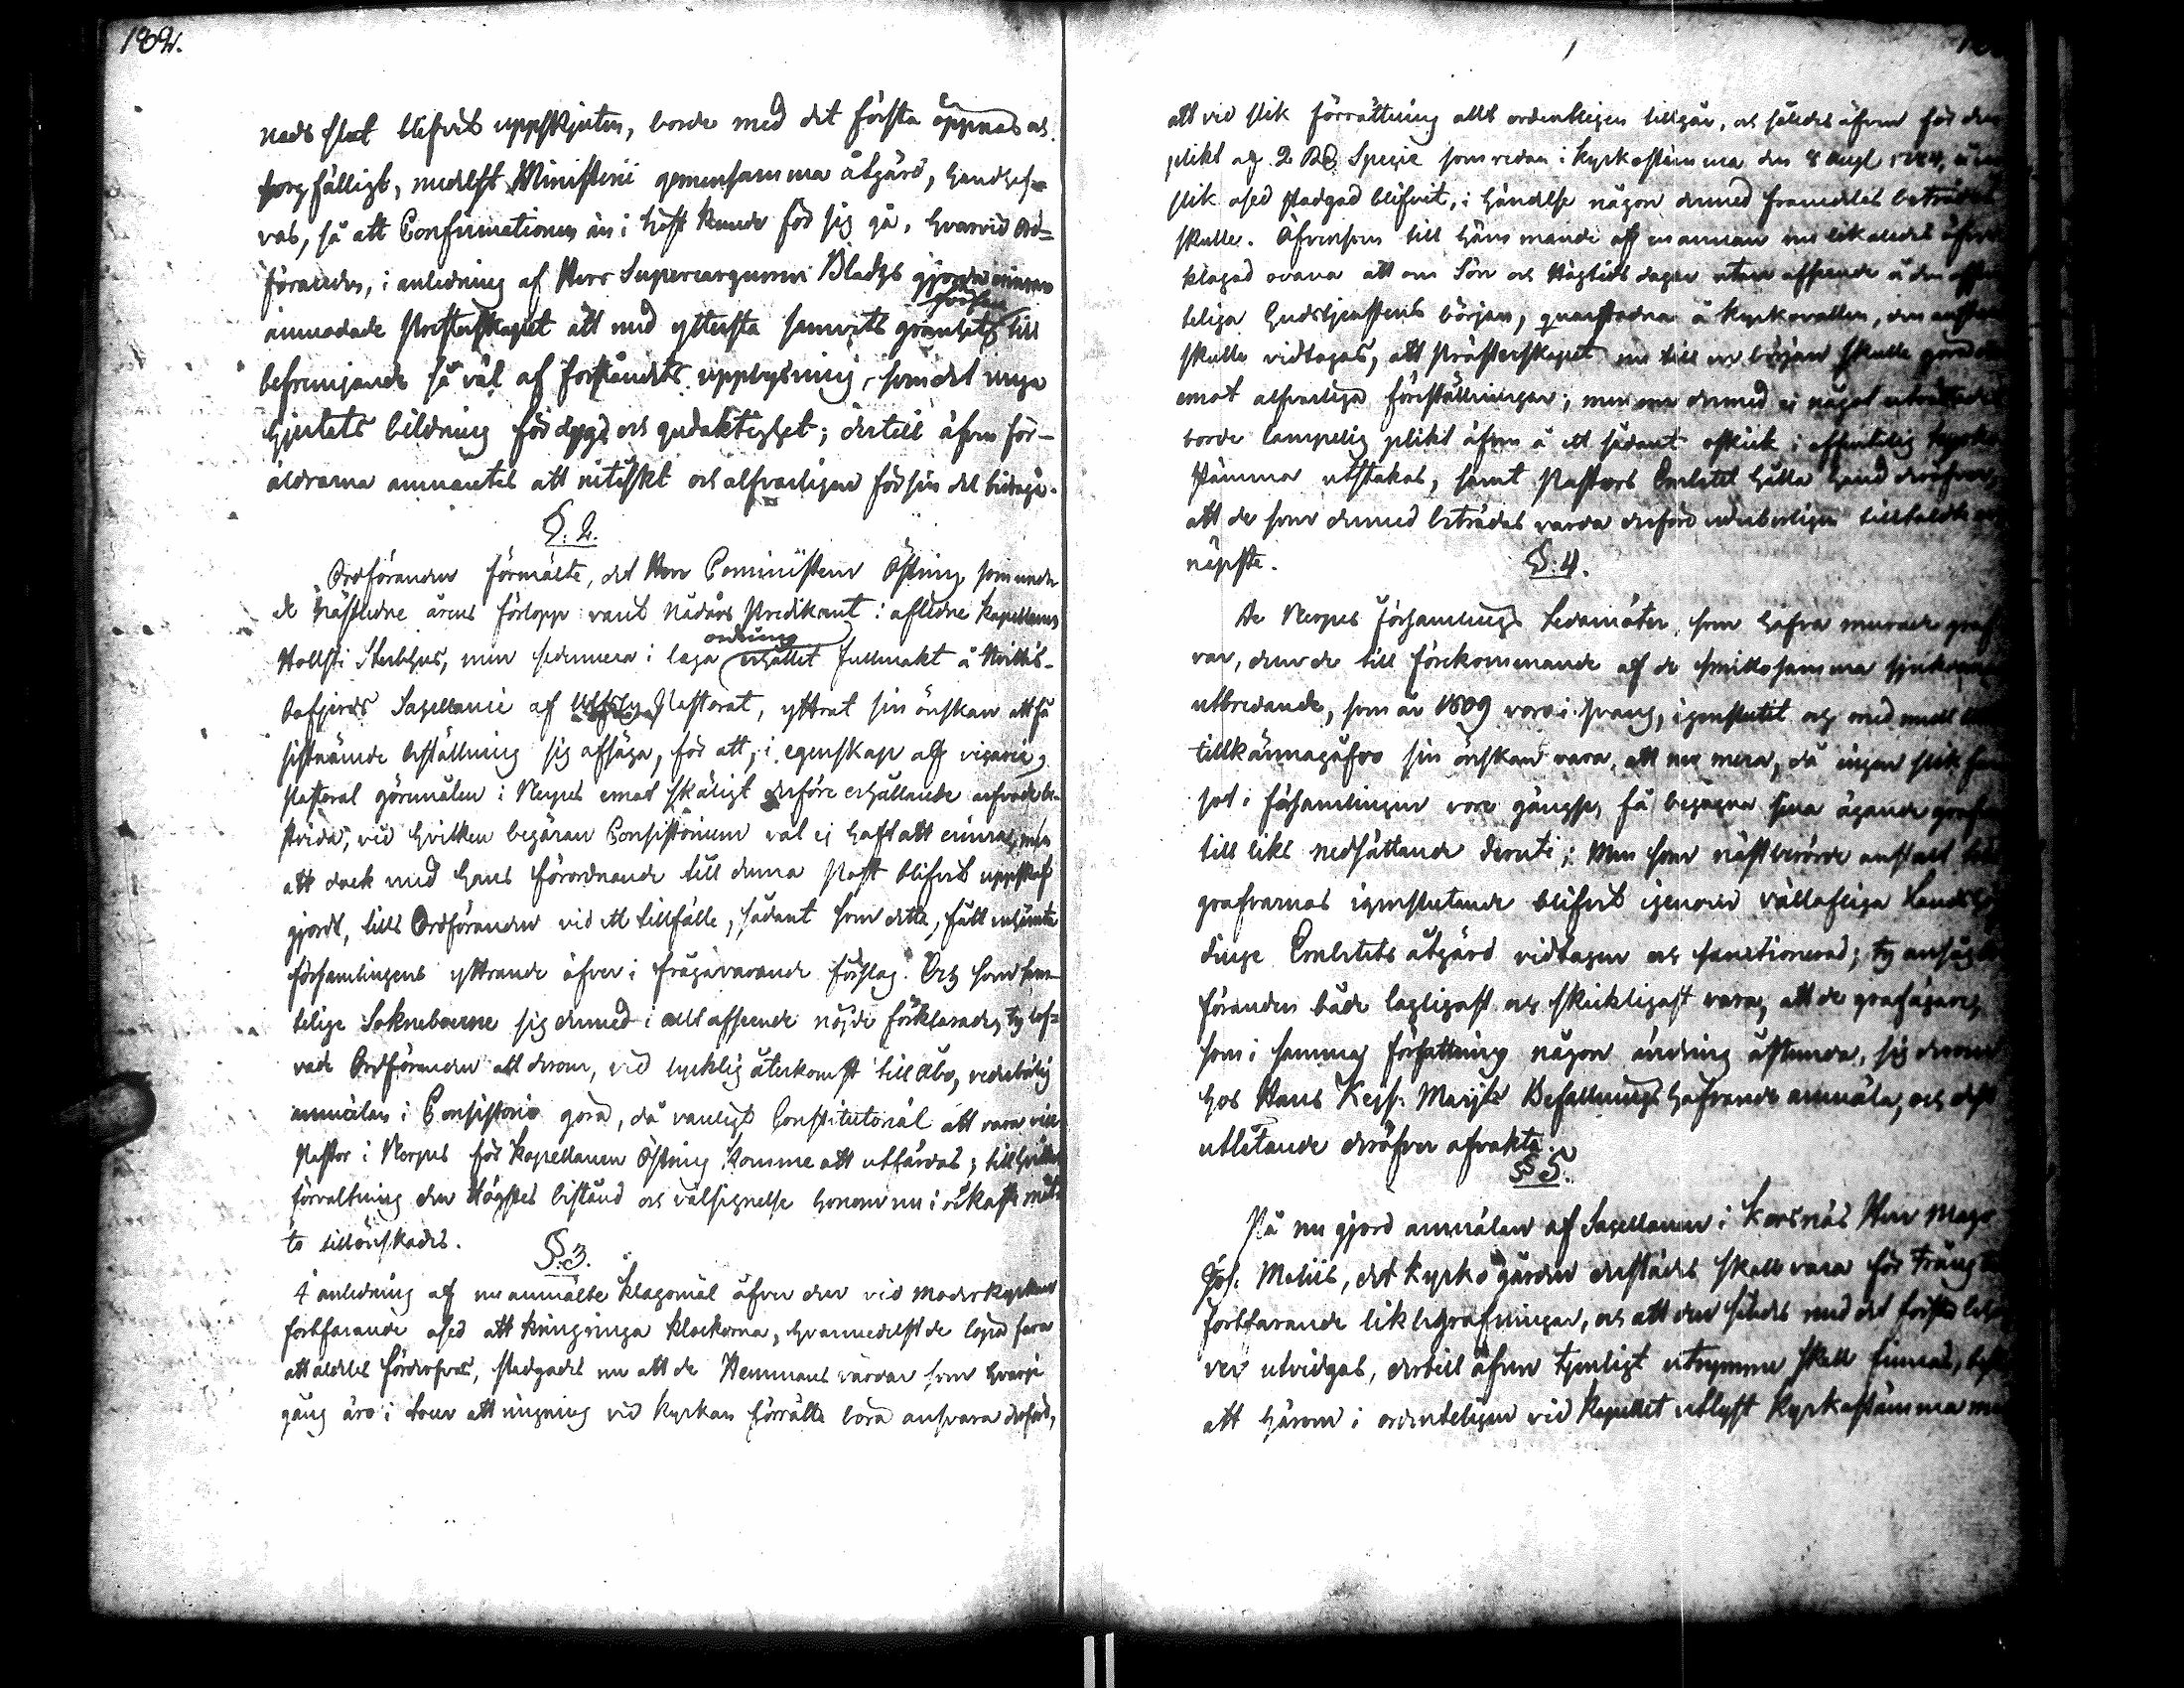 182.
nads slut blifvit uppskjuten, borde med det första öppnas och
sorgfälligt, medelst Ministerii gemensamma åtgärd, handhaf-
vas, så att Confirmationen än i höst kunde för sig gå, hvarvid Ord-
föranden, i anledning af Herr Supercargeuren Bladhs gjorde
anmodade Presterskapet att med yttersta samvets grannlagenhet till
befremjande så väl af förståndets upplysning, som det unga
hjertats bildning för dygd och gudaktighet; dertill äfven för-
äldrarna anmantes att nitiskt och alfvarligen för sin del bidraga.
§. 2.
Ordföranden förmälte, det Herr Comministern Östring som unde
de nästledne årens förlopp varit nådårs Predikant i aflidne Kapellanen
Hollsti Sterbhus, men sedermera i laga ordning erhållet fullmakt å Kvitis-
Sacellanie af Pastorat, yttrat sin önskan att få
sistnämde beställning sig afsäga, för att, i egenskap af vicarie,
Pastoral görmålen i Nerpes emot skäligt derföre erhållande arfvode be-
strida, vid hvilken begäran Consistorium väl ej haft att erinra, men
att dock med hans förordnande till denna Post blifvit uppskof
gjordt, tills Ordföranden vid ett tillfälle, sådant som detta, fått inhämta
församlingens yttrande äfver i frågavarande förslag. Och som sam-
telige Sokneboerne sig dermed i allt afseende nöjde förklarade, ty lof-
vade Ordföranden att derom, vid lycklig återkomst till Åbo, vederbörlig
anmälan i Consistorio göra, då vanligt Constitutorial att vara vice
Pastor i Nerpes för Kapellanen Östring komme att utfärdas; till hvilken
förvaltning den Högstes bistånd och välsignelse honom nu i
to tillönskades.
§. 3.
I anledning af nu anmälte klagomål äfver den vid Moderkyrkan
fortfarande osed att kringringa klockorna, hvarmedelst de löpa fara
att aldeles förderfvas, stadgades nu att de Hemmans värdar som hvarje
gång äro i tour att ringning vid kyrkan förrätta böra ansvara derför,
att vid slik förrättning allt ordentligen tillgår, och således äfven för den
plikt af 2 RD Specie som redan i kyrkostämma den 8 Augt
slik osed stadgad blifvit, i händelse någon dermed framdeles beträdes
skulle. Äfvensom till hämmande af en annan nu likaledes äfver
klagad ovana att om Sön och Högtids dagar utan afseende å den offen
teliga Gudstjenstens början, quarstadna å kyrkovallen, den anstalt
skulle vidtagas, att Prästerskapet nu till en början skulle göra der
emot alfvarliga föreställningar; men om dermed ej något uträttades
borde lämpelig plikt äfven å ett sådant oskick i offentelig kyrko
stämma utstakas, samt Pastors Embetet hålla hand deröfver,
att de som dermed beträdas varda derföre vederbörligen tilltaldte och
näpste.
§. 4.
De Nerpes Församlings Ledamöter, som hafva murade graf
var, dem de till förekommande af de smittosamma sjukdomars
utbredande, som år 1809 voro i svang, igenslutit och med mull
tillkännagåfvo sin önskan vara, att nu mera, då ingen slik far
sot i församlingen vore gängse, få begagna sina ägande grafvar
till liks nedsättande deruti; Men som nästberörde anstalt
grafvarnas igenslutande blifvit igenom vällofliga Landshöf
dinge Embetets åtgärd vidtagen och sanctionerad; ty ansåg
föranden både lagligast och skickligast vara, att de grafägare,
som i samma författning någon ändring åstunda, sig derom
hos Hans Kejs. Maijts Befallningshafvande anmäla, och dess
utlåtande deröfver afvakta.
§ 5.
På nu gjord anmälan af Sacellanen i Korsnäs Herr Mag
Joh. Meliis, det kyrkogården derstädes skall vara för trång
fortfarande likbegrafningar, och att den således med det första
ver utvidgas, dertill äfven tjenligt utrymme skall finnas,
att härom i ordenteligen vid Kapellet utlyst kyrkostämma